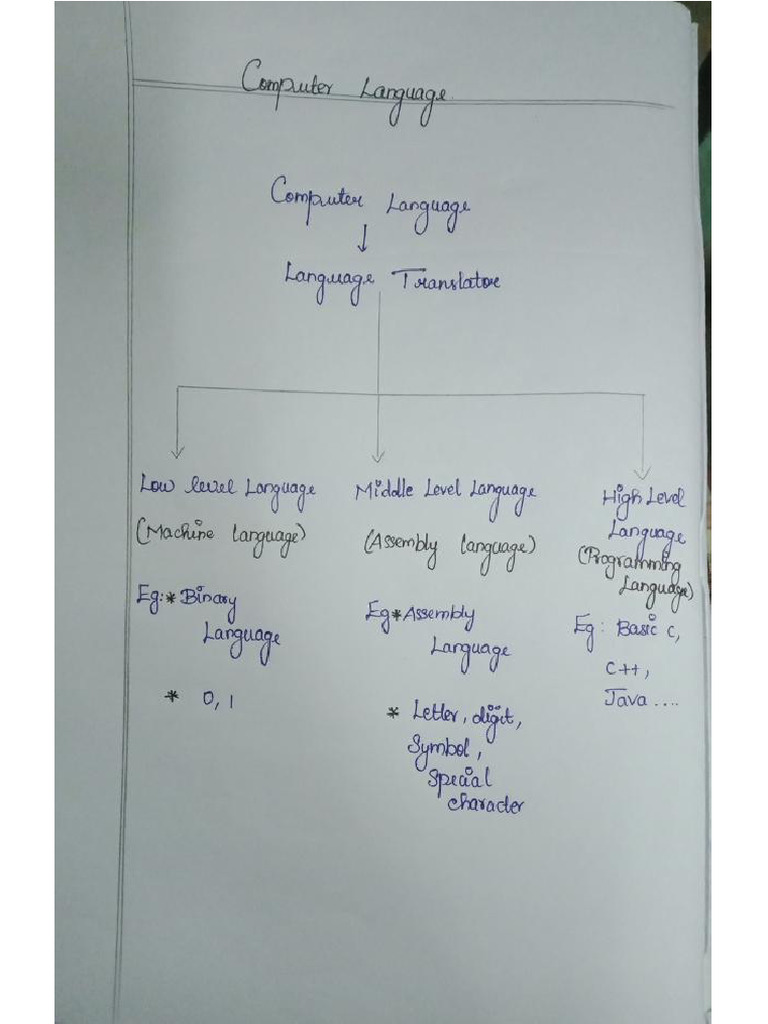 Computer Language
Computer Language
Language Translator
Low level Language
(Machine language)
Eg:* Binary
Language
* 0, 1
Middle Level Language
(Assembly language)
Eg * Assembly
Language
* Letter, digit,
Symbol,
Special
character
High Level
Language
(Programming
Language)
Eg: Basic C,
C++,
Java ....